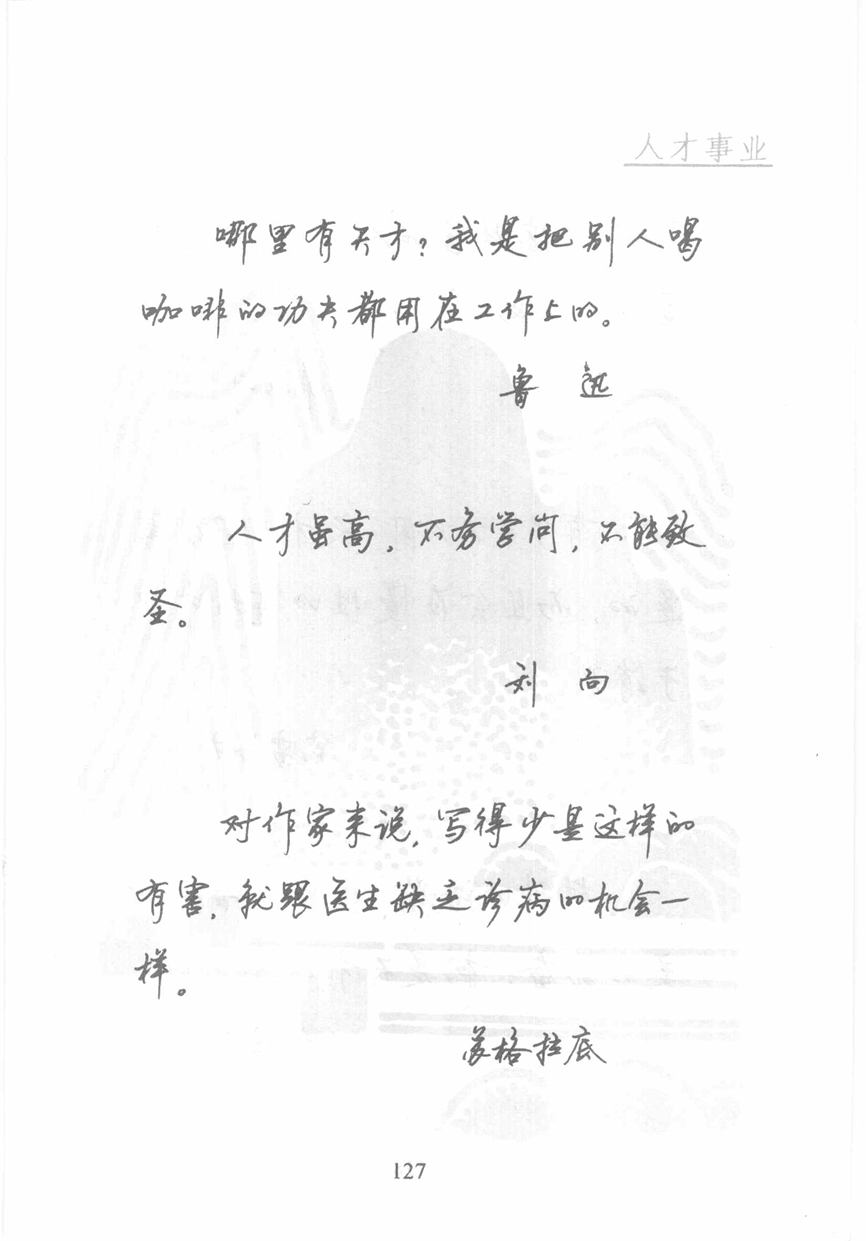 人才事业
哪里有天才？我是把别人喝
咖啡的功夫都用在工作上的。
鲁 迅
人才虽高，不务学问，不能致
圣。
刘 向
对作家来说，写得少是这样的
有害，就跟医生缺乏诊病的机会一
样。
苏格拉底
127